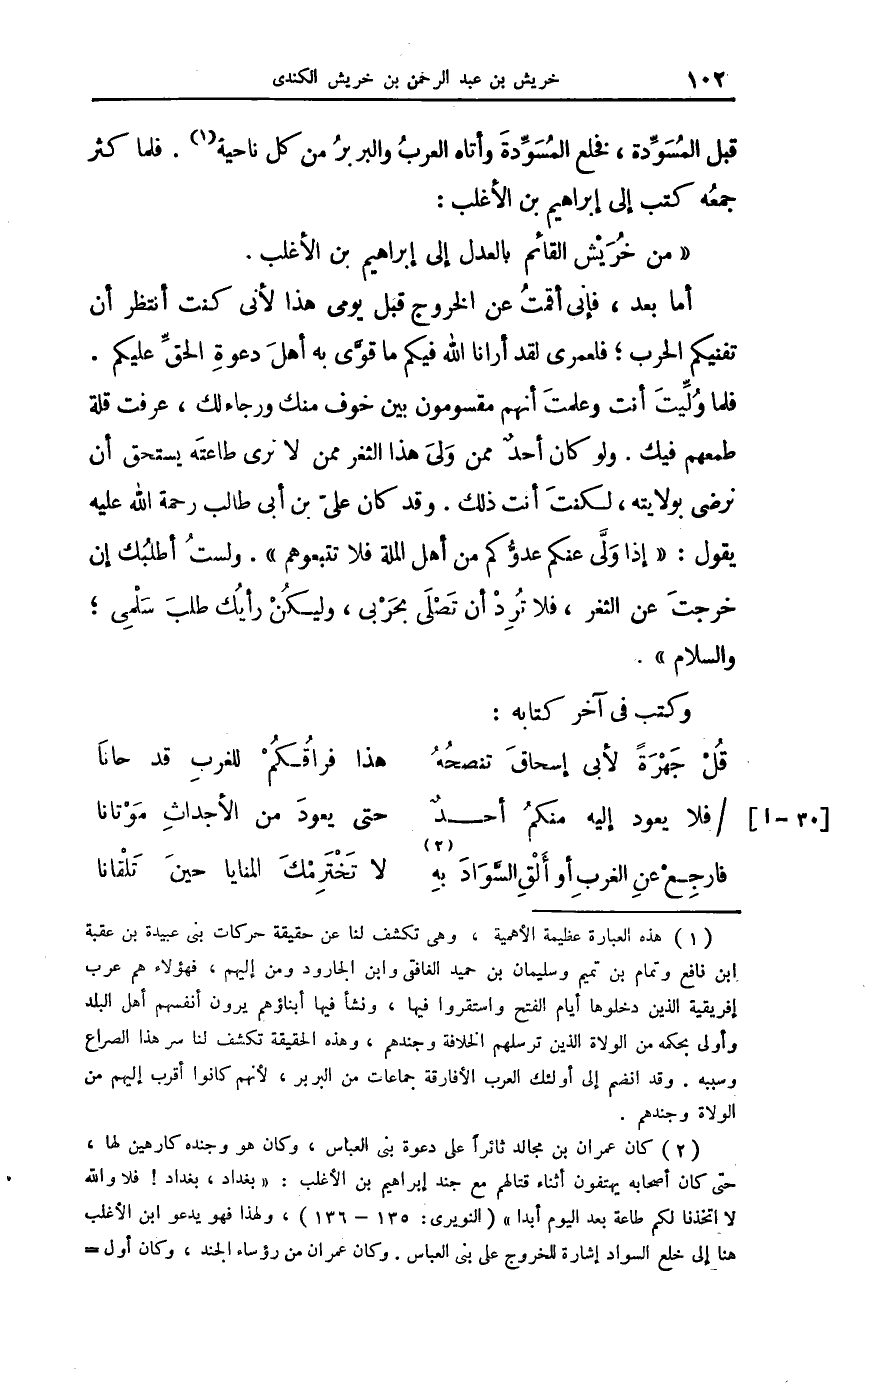 ١٠٢ خريش بن عبد الرحمن بن خريش الكندى
قبل المُسَوِّدة ، فخلع المُسَوِّدةَ وأتاه العربُ والبربرُ من كل ناحية(١) . فلما كثر
جمعُه كتب إلى إبراهيم بن الأغلب :
« من خُرَيْش القائم بالعدل إلى إبراهيم بن الأغلب .
أما بعد ، فإنى أقمتُ عن الخروج قبل يومى هذا لأنى كنت أنتظر أن
تفنيكم الحرب ؛ فلعمرى لقد أرانا الله فيكم ما قوَّى به أهلَ دعوةِ الحقِّ عليكم .
فلما وُلِّيتَ أنت وعلمتَ أنهم مقسومون بين خوف منك ورجاء لك ، عرفت قلة
طمعهم فيك . ولو كان أحدٌ ممن وَلىَ هذا الثغر ممن لا نرى طاعتَه يستحق أن
نرضى بولايته ، لكنتَ أنت ذلك . وقد كان علىّ بن أبى طالب رحمة الله عليه
يقول : « إذا وَلَّى عنكم عدوُّكم من أهل الملة فلا تتبعوهم » . ولستُ أطلبُك إن
خرجتَ عن الثغر ، فلا تُرِدْ أن تَصْلَى بحَرْبى ، وليكُنْ رأيُك طلبَ سَلْمِى ؛
والسلام » .
وكتب فى آخر كتابه :
قُلْ جَهْرَةً لأبى إسحاقَ تنصحُهُ هذا فراقُكُمْ للغربِ قد حانَا
[٣٠-ا] / فلا يعود إليه منكمُ أحدٌ حتى يعودَ من الأجداثِ مَوْتانا
فارجِعْ عنِ الغربِ أو أَلْقِ السَّوَادَ بهِ (٢) لا تَخْتَرِمْكَ المنايا حينَ تَلْقانا
(١) هذه العبارة عظيمة الأهمية ، وهى تكشف لنا عن حقيقة حركات بنى عبيدة بن عقبة
ابن نافع وتمام بن تميم وسليمان بن حميد الغافقى وابن الجارود ومن إليهم ، فهؤلاء هم عرب
إفريقية الذين دخلوها أيام الفتح واستقروا فيها ، ونشأ فيها أبناؤهم يرون أنفسهم أهل البلد
وأولى بحكمه من الولاة الذين ترسلهم الخلافة وجندهم ، وهذه الحقيقة تكشف لنا سر هذا الصراع
وسببه . وقد انضم إلى أولئك العرب الأفارقة جماعات من البربر ، لأنهم كانوا أقرب إليهم من
الولاة وجندهم .
(٢) كان عمران بن مجالد ثائراً على دعوة بنى العباس ، وكان هو وجنده كارهين لها ،
حتى كان أصحابه يهتفون أثناء قتالهم مع جند إبراهيم بن الأغلب : « بغداد ، بغداد ! فلا والله
لا اتخذنا لكم طاعة بعد اليوم أبدا » (النويرى: ١٣٥ – ١٣٦) ، ولهذا فهو يدعو ابن الأغلب
هنا إلى خلع السواد إشارة للخروج على بنى العباس . وكان عمران من رؤساء الجند ، وكان أول =